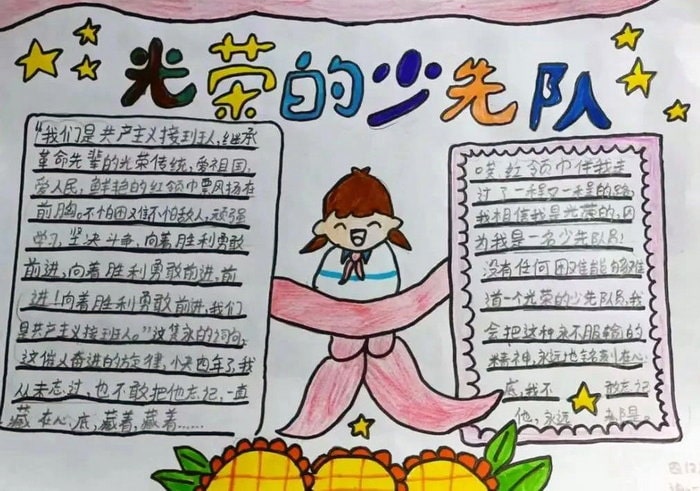 光荣的少先队
"我们是共产主义接班人,继承
革命先辈的光荣传统,爱祖国,
爱人民,鲜艳的红领巾飘扬在
前胸。不怕困难不怕敌人,顽强
学习,坚决斗争,向着胜利勇敢
前进,向着胜利勇敢前进,前
进!向着胜利勇敢前进,我们
是共产主义接班人。"这隽永的词句,
这催人奋进的旋律,快四年了,我
从未忘过,也不敢把他忘记,一直
藏在心底,藏着,藏着……
哎,红领巾伴我走
过了一程又一程的路,
我相信我是光荣的,因
为我是一名少先队员!
没有任何困难能够难
道一个光荣的少先队员,我
会把这种永不服输的
精神,永远地铭刻在心
底,我不 敢忘记
他,永远